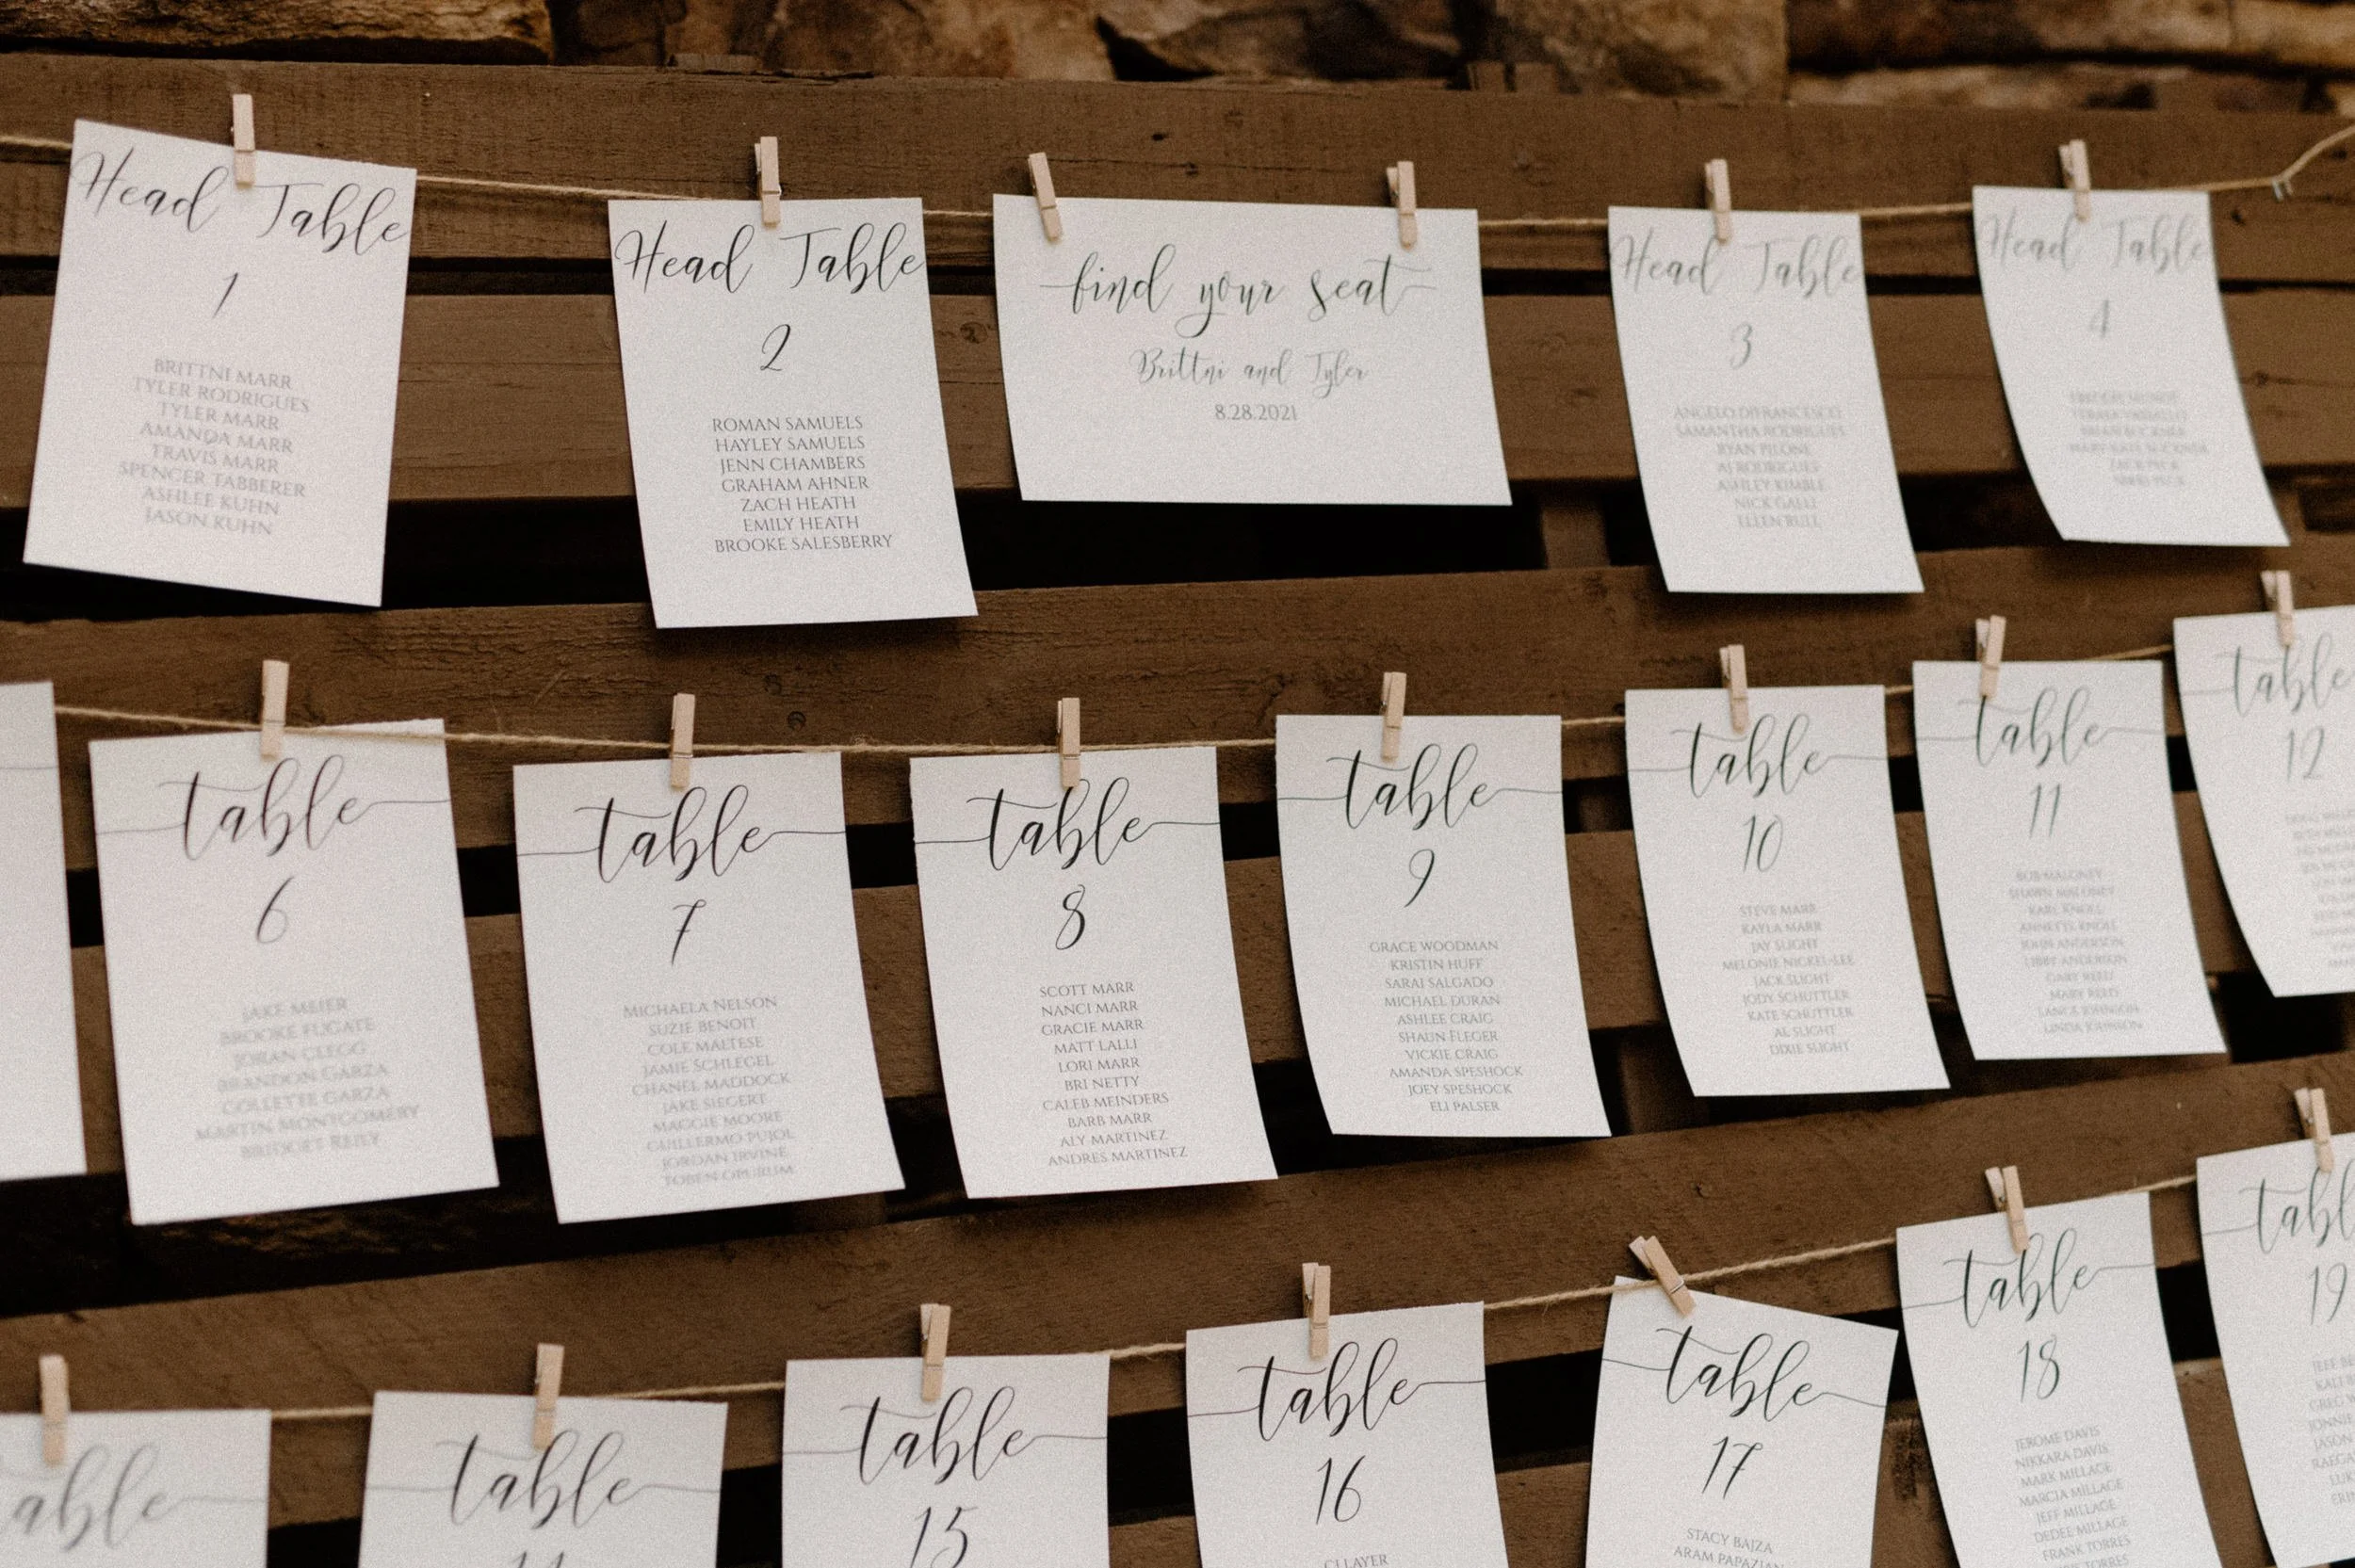 Head Table
1
BRITTNI MARR
TYLER RODRIGUES
TYLER MARR
AMANDA MARR
TRAVIS MARR
SPENCER TABBERER
ASHLEE KUHN
JASON KUHN
Head Table
2
ROMAN SAMUELS
HAYLEY SAMUELS
JENN CHAMBERS
GRAHAM AHNER
ZACH HEATH
EMILY HEATH
BROOKE SALESBERRY
find your seat
Brittni and Tyler
8.28.2021
Head Table
3
ANGELO DIFRANCESCO
SAMANTHA RODRIGUES
RYAN PILONE
AJ RODRIGUES
ASHLEY KIMBLE
NICK GALLI
ELLEN RULL
Head Table
4
table
6
JAKE MEIER
BROOKE FUGATE
JORAN CLEGG
BRANDON GARZA
COLLETTE GARZA
MARTIN MONTGOMERY
BRIDGET REILY
table
7
MICHAELA NELSON
SUZIE BENOIT
COLE MALTESE
JAMIE SCHLEGEL
CHANEL MADDOCK
JAKE SIEGERT
MAGGIE MOORE
GUILLERMO PUJOL
JORDAN IRVINE
TOBEN
table
8
SCOTT MARR
NANCI MARR
GRACIE MARR
MATT LALLI
LORI MARR
BRI NETTY
CALEB MEINDERS
BARB MARR
ALY MARTINEZ
ANDRES MARTINEZ
table
9
GRACE WOODMAN
KRISTIN HUFF
SARAI SALGADO
MICHAEL DURAN
ASHLEE CRAIG
SHAUN FLEGER
VICKIE CRAIG
AMANDA SPESHOCK
JOEY SPESHOCK
ELI PALSER
table
10
STEVE MARR
KAYLA MARR
JAY SLIGHT
MELONIE NICKEL-LEE
JACK SLIGHT
JODY SCHUTTLER
KATE SCHUTTLER
AL SLIGHT
DIXIE SLIGHT
table
11
BOB MALONEY
SHAWN MALONEY
KARL KNOLL
ANNETTE KNOLL
JOHN ANDERSON
LIBBY ANDERSON
GARY REED
MARY REED
LANCE JOHNSON
LINDA JOHNSON
table
12
table
table
15
table
16
CJ LAYER
table
17
STACY BAJZA
ARAM PAPAZIAN
table
18
JEROME DAVIS
NIKKARA DAVIS
MARK MILLAGE
MARCIA MILLAGE
JEFF MILLAGE
DEDEE MILLAGE
FRANK TORRES
table
19